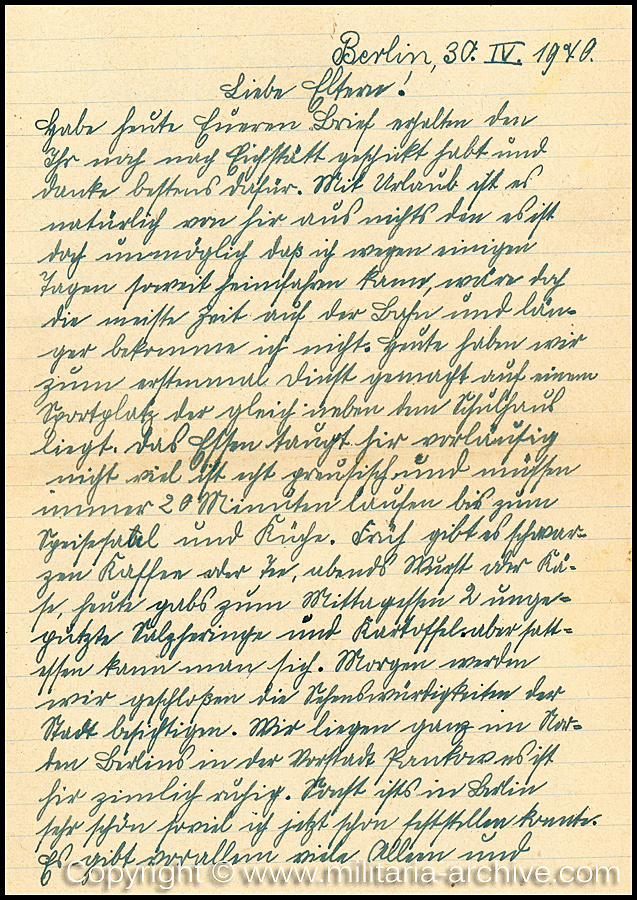 Berlin, 30. IV. 1940.
Liebe Eltern!
Habe heute Eueren Brief erhalten den
Ihr noch nach Eichstätt geschikt habt und
danke bestens dafür. Mit Urlaub ist es
natürlich von hir aus nichts den es ist
doch unmöglich daß ich wegen einigen
Tagen soweit heimfahren kann, wäre doch
die meiste Zeit auf der Bahn und län-
ger bekomme ich nicht. Heute haben wir
zum erstenmal Dinst gemacht auf einem
Sportplatz der gleich neben dem Schulhaus
liegt. Das Essen taugt hir vorläufig
nicht viel ist echt preusisch und müssen
immer 20 Minuten laufen bis zum
Speisesaal und Küche. Früh gibt es schwar-
zen Kaffee oder Tee, abends Wurst oder Kä-
se, heute gabs zum Mittagessen 2 unge-
putzte Salzheringe und Kartoffel aber satt-
essen kann man sich. Morgen werden
wir geschloßen die Sehenswürdigkeiten der
Stadt besichtigen. Wir liegen ganz im Nor-
den Berlins in der Vorstadt Pankow es ist
hir zimlich ruhig. Sonst ists in Berlin
sehr schön soviel ich jetzt schon feststellen konnte.
Es gibt vorallem viele Alleen und
Copyright © www.militaria-archive.com